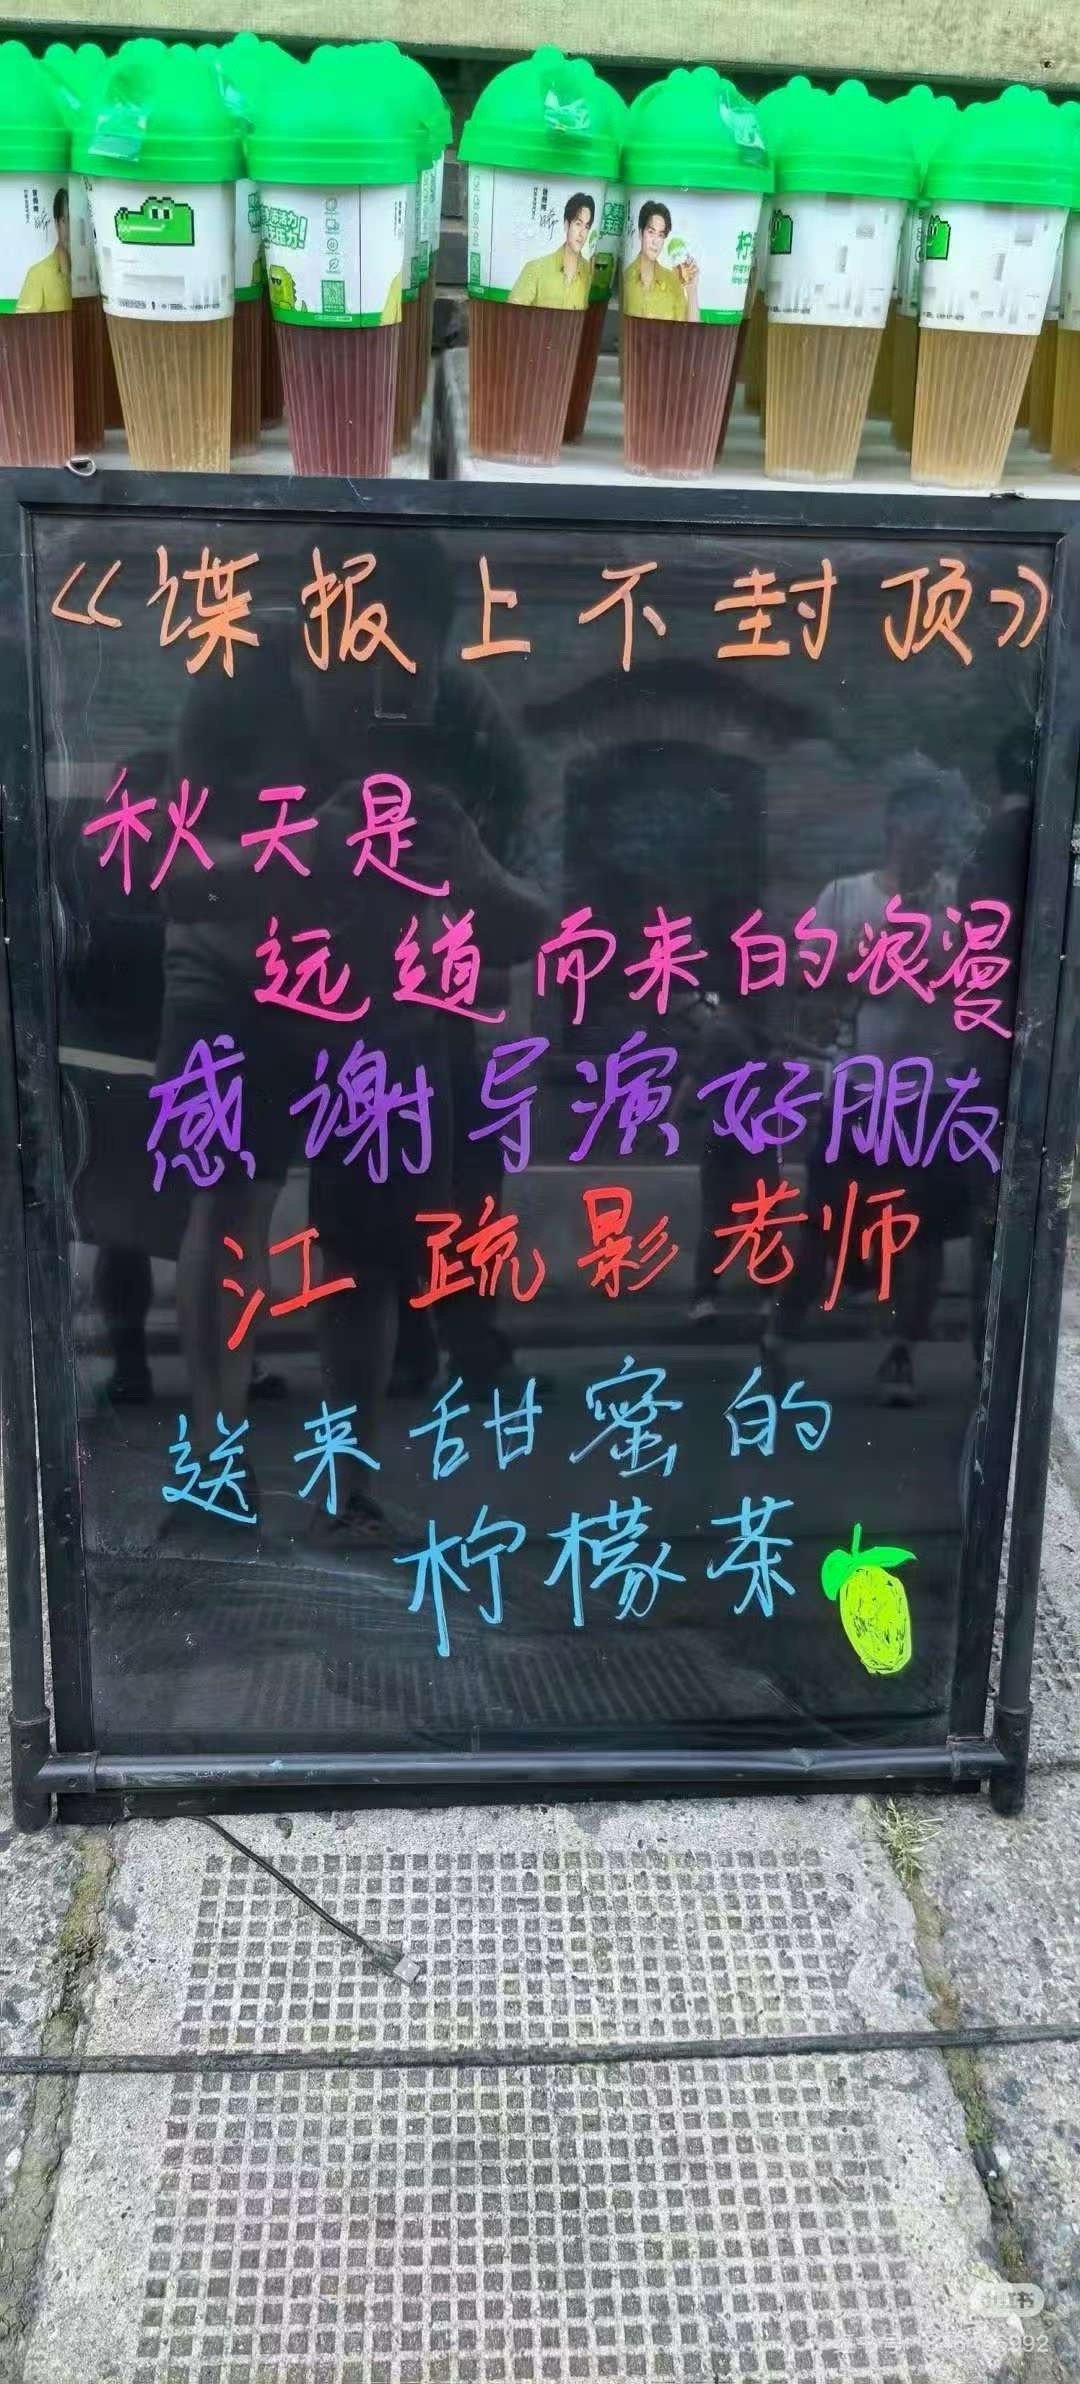 柠
《谍报上不封顶》
秋天是
远道而来的浪漫
感谢导演好朋友
江疏影老师
送来甜蜜的
柠檬茶
小红书